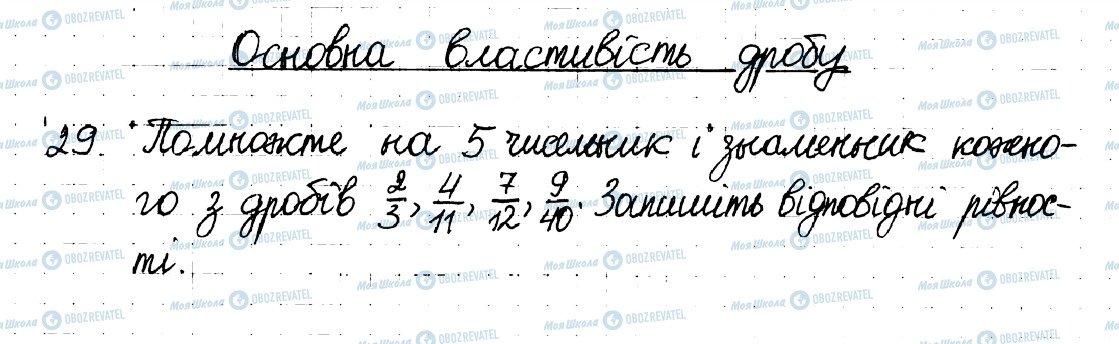 Основна властивість дробу
29. Помножте на 5 чисельник і знаменник кожно-
го з дробів 2/3, 4/11, 7/12, 9/40. Запишіть відповідні рівнос-
ті.
Моя Школа OBOZREVATEL